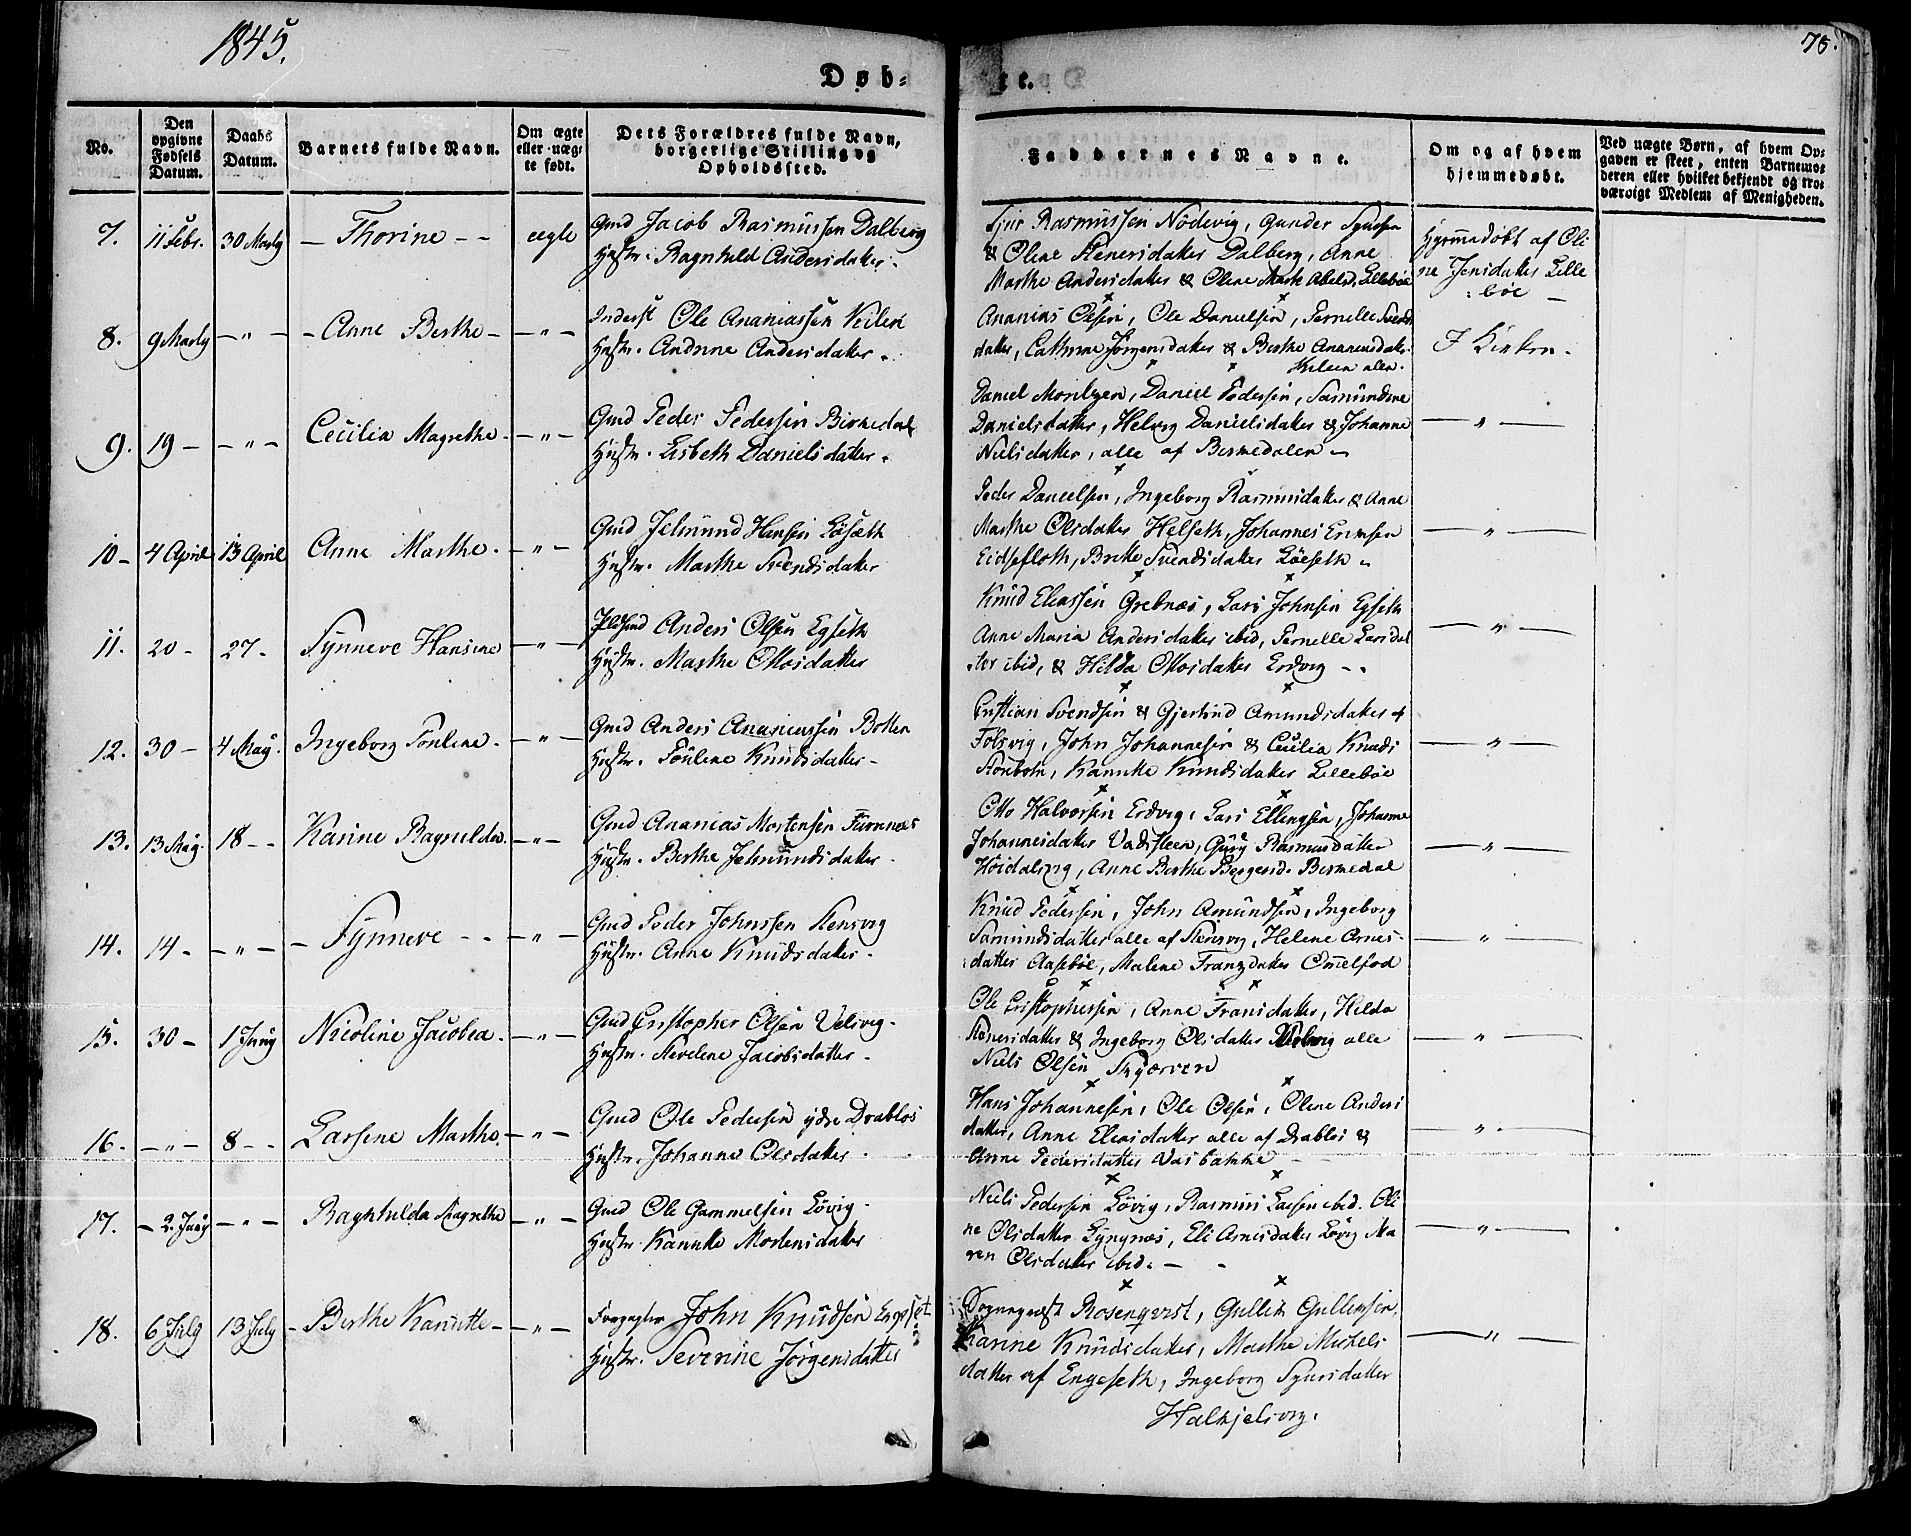 1845.
75.
Døb-
te.
No.
Den opgivne Fødsels Datum.
Daabs Datum.
Barnets fulde Navn.
Om ægte eller uægte født.
Dets Forældres fulde Navn, borgerlige Stilling og Opholdssted.
Faddernes Navne.
Om og af hvem hjemmedøbt.
Ved uægte Børn, af hvem Opgaven er skeet, enten Barnemoderen eller hvilket bekjendt og troværdigt Medlem af Menigheden.
7. 11 Febr. 30 Marty — Thorine — ægte
Gmd Jacob Rasmussen Dalberg
Hustr. Ragnhild Andersdatter.
Rasmussen Nödevig, Gunder
& Oline Steners datter Dalberg, Anne
Marthe Andersdatter & Oline Abelsd. Lillebøe
Hjemmedøbt af Oline Jensdatter Lillebøe
8. 9 Marty — " — — Anne Berthe — — " —
Inderst Ole Ananiassen Keilen
Hustr. Andrine Andersdatter.
Ananias Olsen, Ole Danielsen, Pernelle Svendsdatter, Cathrine Jørgensdatter & Berthe Ananiasdatter
alle.
I Kirken.
9. 19 — — " — Cecilia Magrethe. — " —
Gmd Peder Pedersen Birkedal
Hustr. Lisbeth Danielsdatter.
Daniel Moritzen, Daniel Pedersen, Samundine
Danielsdatter, Helvig Danielsdatter & Johanne
Nielsdatter, alle af Birkedalen
— " —
10 — 4 April 13 April Anne Marthe. — " —
Gmd Jelmund Hansen Løseth
Hustr. Marthe Svendsdatter
Peder Danielsen, Ingeborg Rasmusdatter & Anne
Marthe Olsdatter Helseth, Johannes
Brithe Svendsdatter Løeseth
— " —
11. 20 — 27. — Synneve Hansine — " —
Anders Olsen Egseth
Hustr. Marthe Ottosdatter
Knud Eliassen Grebnæs, Lars Johnsen Egseth
Anne Maria Andersdatter ibid, Pernelle Larsdatter ibid, & Hilda Ottosdatter Ervig
— " —
12. 30 — 4 May. Ingeborg Pouline. — " —
Gmd Anders Ananiassen Botten
Hustr. Pouline Knudsdatter —
Cristian Svendsen & Gjertrud Amundsdatter af
Folsvig, John Johannesen & Cecilia Knuds
Kanutte Knudsdatter Lillebøe
— " —
13. 13 May. 18 — Karine Ragnilda. — " —
Gmd Ananias Mortensen Furnnes
Hustr. Berthe Jelmundsdatter.
Otto Halvorsen Ervig, Lars Ellingsen, Johanne
Johannesdatter Vadsteen, Gury Rasmusdatter
Høidalsvig, Anne Berthe Bergersd. Birkedal
— " —
14. 14 — — " — — Synneve — — " —
Gmd Peder Johnssen Stensvig
Hustr. Anne Knudsdatter.
Knud Pedersen, John Amundsen, Ingeborg
Samundsdatter alle af Stensvig, Helene Arnesdatter Aasebøe, Malene Franzdatter
— " —
15. 30 — 1 Juny Nicoline Jacobea. — " —
Gmd Cristopher Olsen Velsvig.
Hustr. Stevelene Jacobsdatter.
Ole Cristophersen, Anne Fransdatter, Hilda
Stenersdatter & Ingeborg Olsdatter Velsvig alle
Niels Olsen Skjærven
— " —
16. — " — 8 — Larsene Marthe. — " —
Gmd Ole Pedersen ydre Drabløs
Hustr. Johanne Olsdatter.
Hans Johannesen, Ole Olsen, Oline Andersdatter, Anne Eliasdatter alle af Drabløs &
Anne Pedersdatter Vasbakke
— " —
17. — 2. Juny — " — Raghnilda Magrethe — " —
Gmd Ole Gammelsen Løvig.
Hustr. Kanutte Mortensdatter
Niels Pedersen Løvig, Rasmus Larsen ibid. Oline Olsdatter Lyngnæs, Eli Arnesdatter Løvig Maren Olsdatter ibid. —
— " —
18. 6 July 13 July — Berthe Kanutte — — " —
Forpagter John Knudsen Engeset
Hustr. Severine Jørgensdatter
Sognepræst Rosenqvist, Gullik Gulliksen,
Karine Knudsdatter, Marthe Michelsdatter af Engeseth, Ingeborg Sjursdatter
Halkjelsvig.
— " —